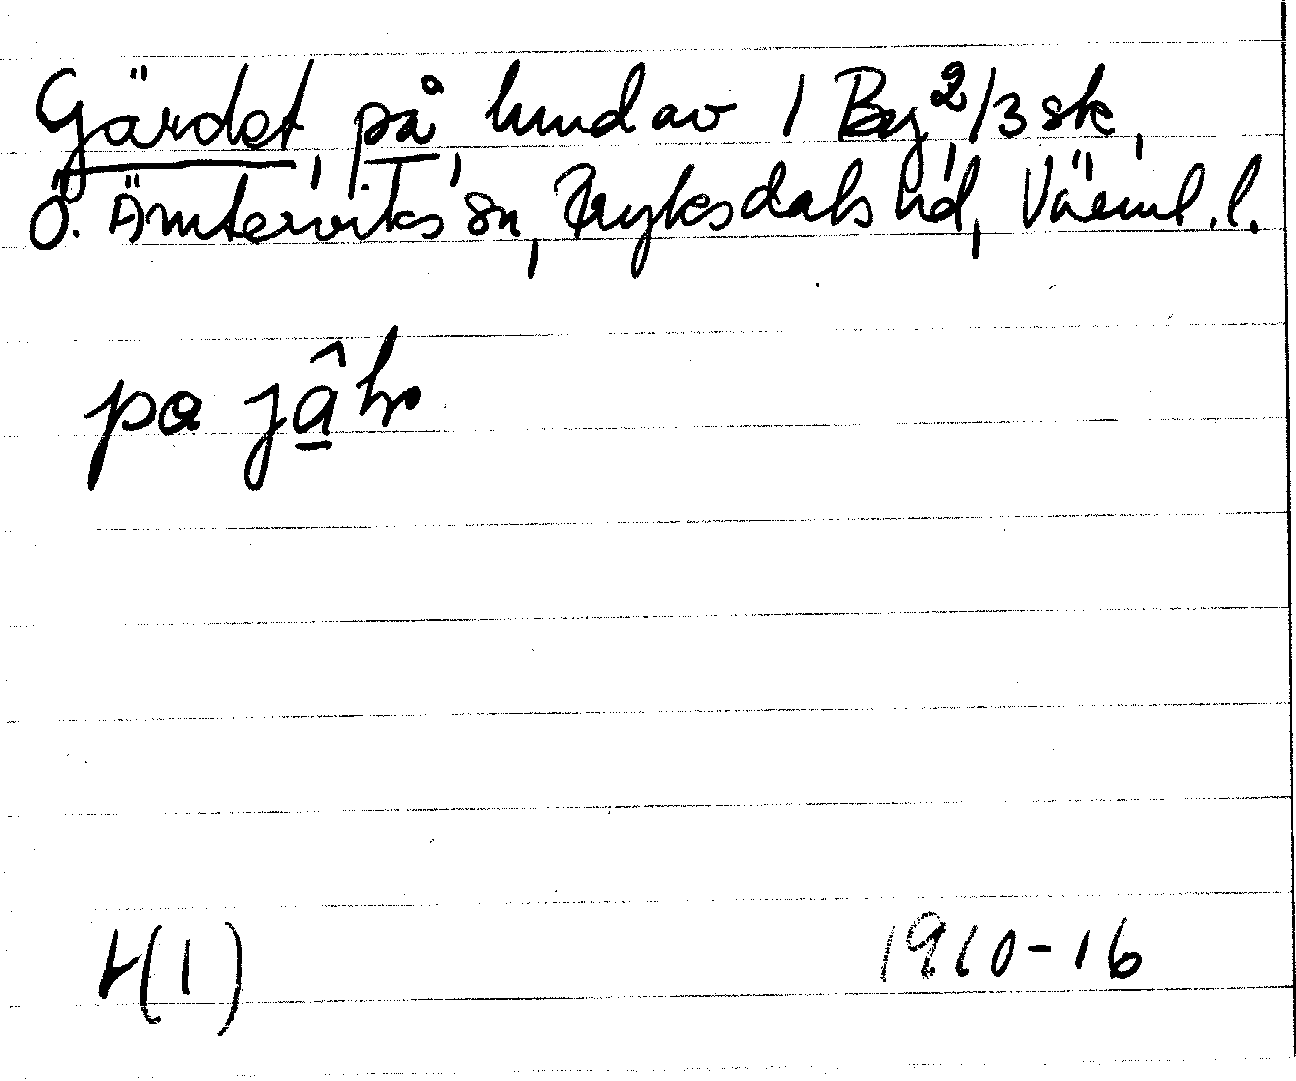 Gärdet, på, hmd av 1 By 2/3 sk,
Ö. Ämterviks sn, Fryksdals hd, Värml. l.
pa jâ
1910-16